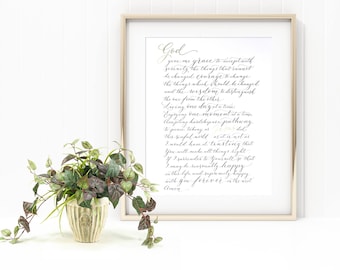 God
give me grace to accept with
serenity the things that cannot
be changed, courage to change
the things which should be changed,
and the wisdom to distinguish
the one from the other.
Living one day at a time,
Enjoying one moment at a time,
Accepting hardship as a pathway
to peace, Taking, as
this sinful world as it is, not as
I would have it, Trusting that
You will make all things right,
If I surrender to Your will, so that
I may be reasonably happy
in this life and supremely happy
with You forever in the next.
Amen.